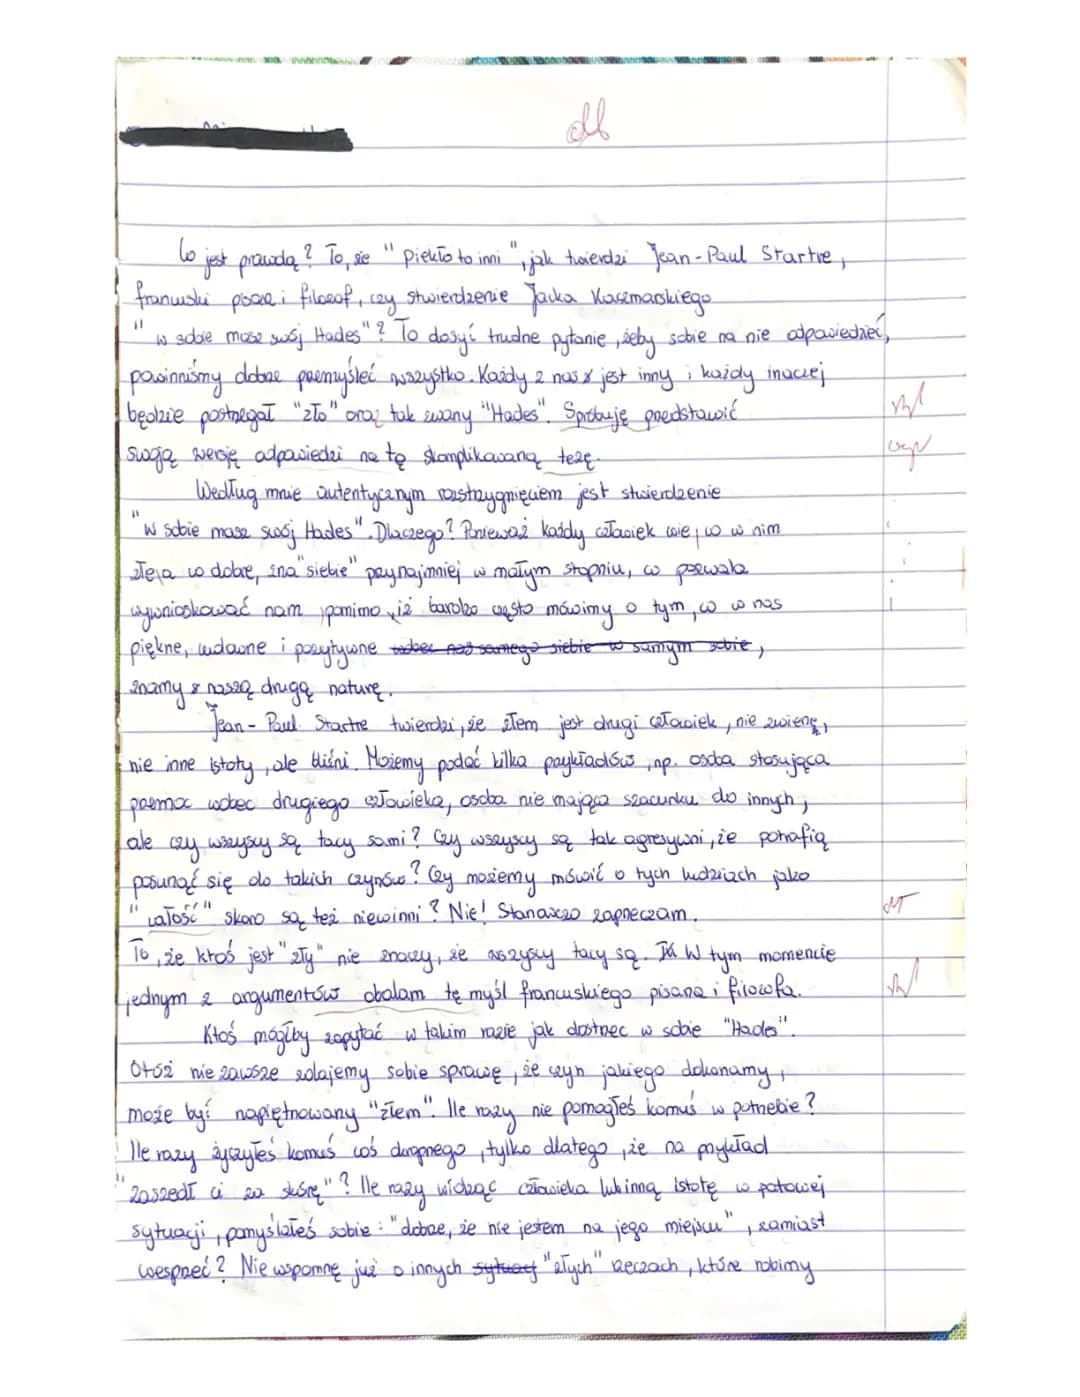 Co jest prawdą? To, że "Piekło to inni", jak twierdzi Jean-Paul Startre,
francuski pisarz i filozof, czy stwierdzenie Jacka Kaczmarskiego
"w sobie masz swój Hades"? To dosyć trudne pytanie, żeby sobie na nie odpowiedzieć,
powinniśmy dobrze przemyśleć wszystko. Każdy z nas jest inny i każdy inaczej
będzie postrzegał "zło" oraz tak zwany "Hades". Spróbuję przedstawić
swoją wersję odpowiedzi na tę skomplikowaną tezę.
Według mnie autentycznym rozstrzygnięciem jest stwierdzenie
"W sobie masz swój Hades". Dlaczego? Ponieważ każdy człowiek wie, co w nim
złe, a co dobre, zna "siebie" przynajmniej w małym stopniu, co pozwala
wywnioskować nam, pomimo, iż bardzo często mówimy o tym, co w nas
piękne, cudowne i pozytywne wobec nas samego siebie w samym sobie,
znamy z naszą drugą naturę.
Jean-Paul Startre twierdzi, że złem jest drugi człowiek, nie zwierzę,
nie inne istoty, ale bliźni. Możemy podać kilka przykładów, np. osoba stosująca
przemoc wobec drugiego człowieka, osoba nie mająca szacunku do innych,
ale czy wszyscy są tacy sami? Czy wszyscy są tak agresywni, że potrafią
posunąć się do takich czynów? Czy możemy mówić o tych ludziach jako
"całość" skoro są też niewinni? Nie! Stanowczo zaprzeczam.
To, że ktoś jest "zły" nie znaczy, że wszyscy tacy są. W tym momencie
jednym z argumentów obalam tę myśl francuskiego pisarza i filozofa.
Ktoś mógłby zapytać w takim razie jak dostrzec w sobie "Hades".
Otóż nie zawsze zdajemy sobie sprawę, że czyn jakiego dokonamy,
może być napiętnowany "złem". Ile razy nie pomogłeś komuś w potrzebie?
Ile razy życzyłeś komuś coś okropnego, tylko dlatego, że na przykład
"zaszedł ci za skórę"? Ile razy widząc człowieka lub inną istotę w patowej
sytuacji, pomyślałeś sobie: "dobrze, że nie jestem na jego miejscu", zamiast
wesprzeć? Nie wspomnę już o innych sytuacj "złych" rzeczach, które robimy